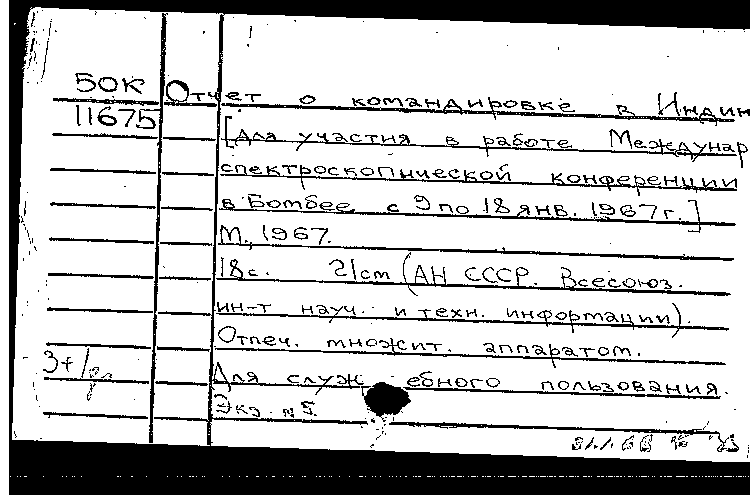 50К Отчет о командировке в Индин
11675 [Для участия в работе Междунар
спектроскопической конференции
в Бомбее с 9 по 18 янв. 1967г.]
М., 1967.
18с. 21cm (АН СССР. Всесоюз.
ин-т науч. и техн. информации).
Отпеч. множит. аппаратом.
Для служебного пользования.
Экз. №5.